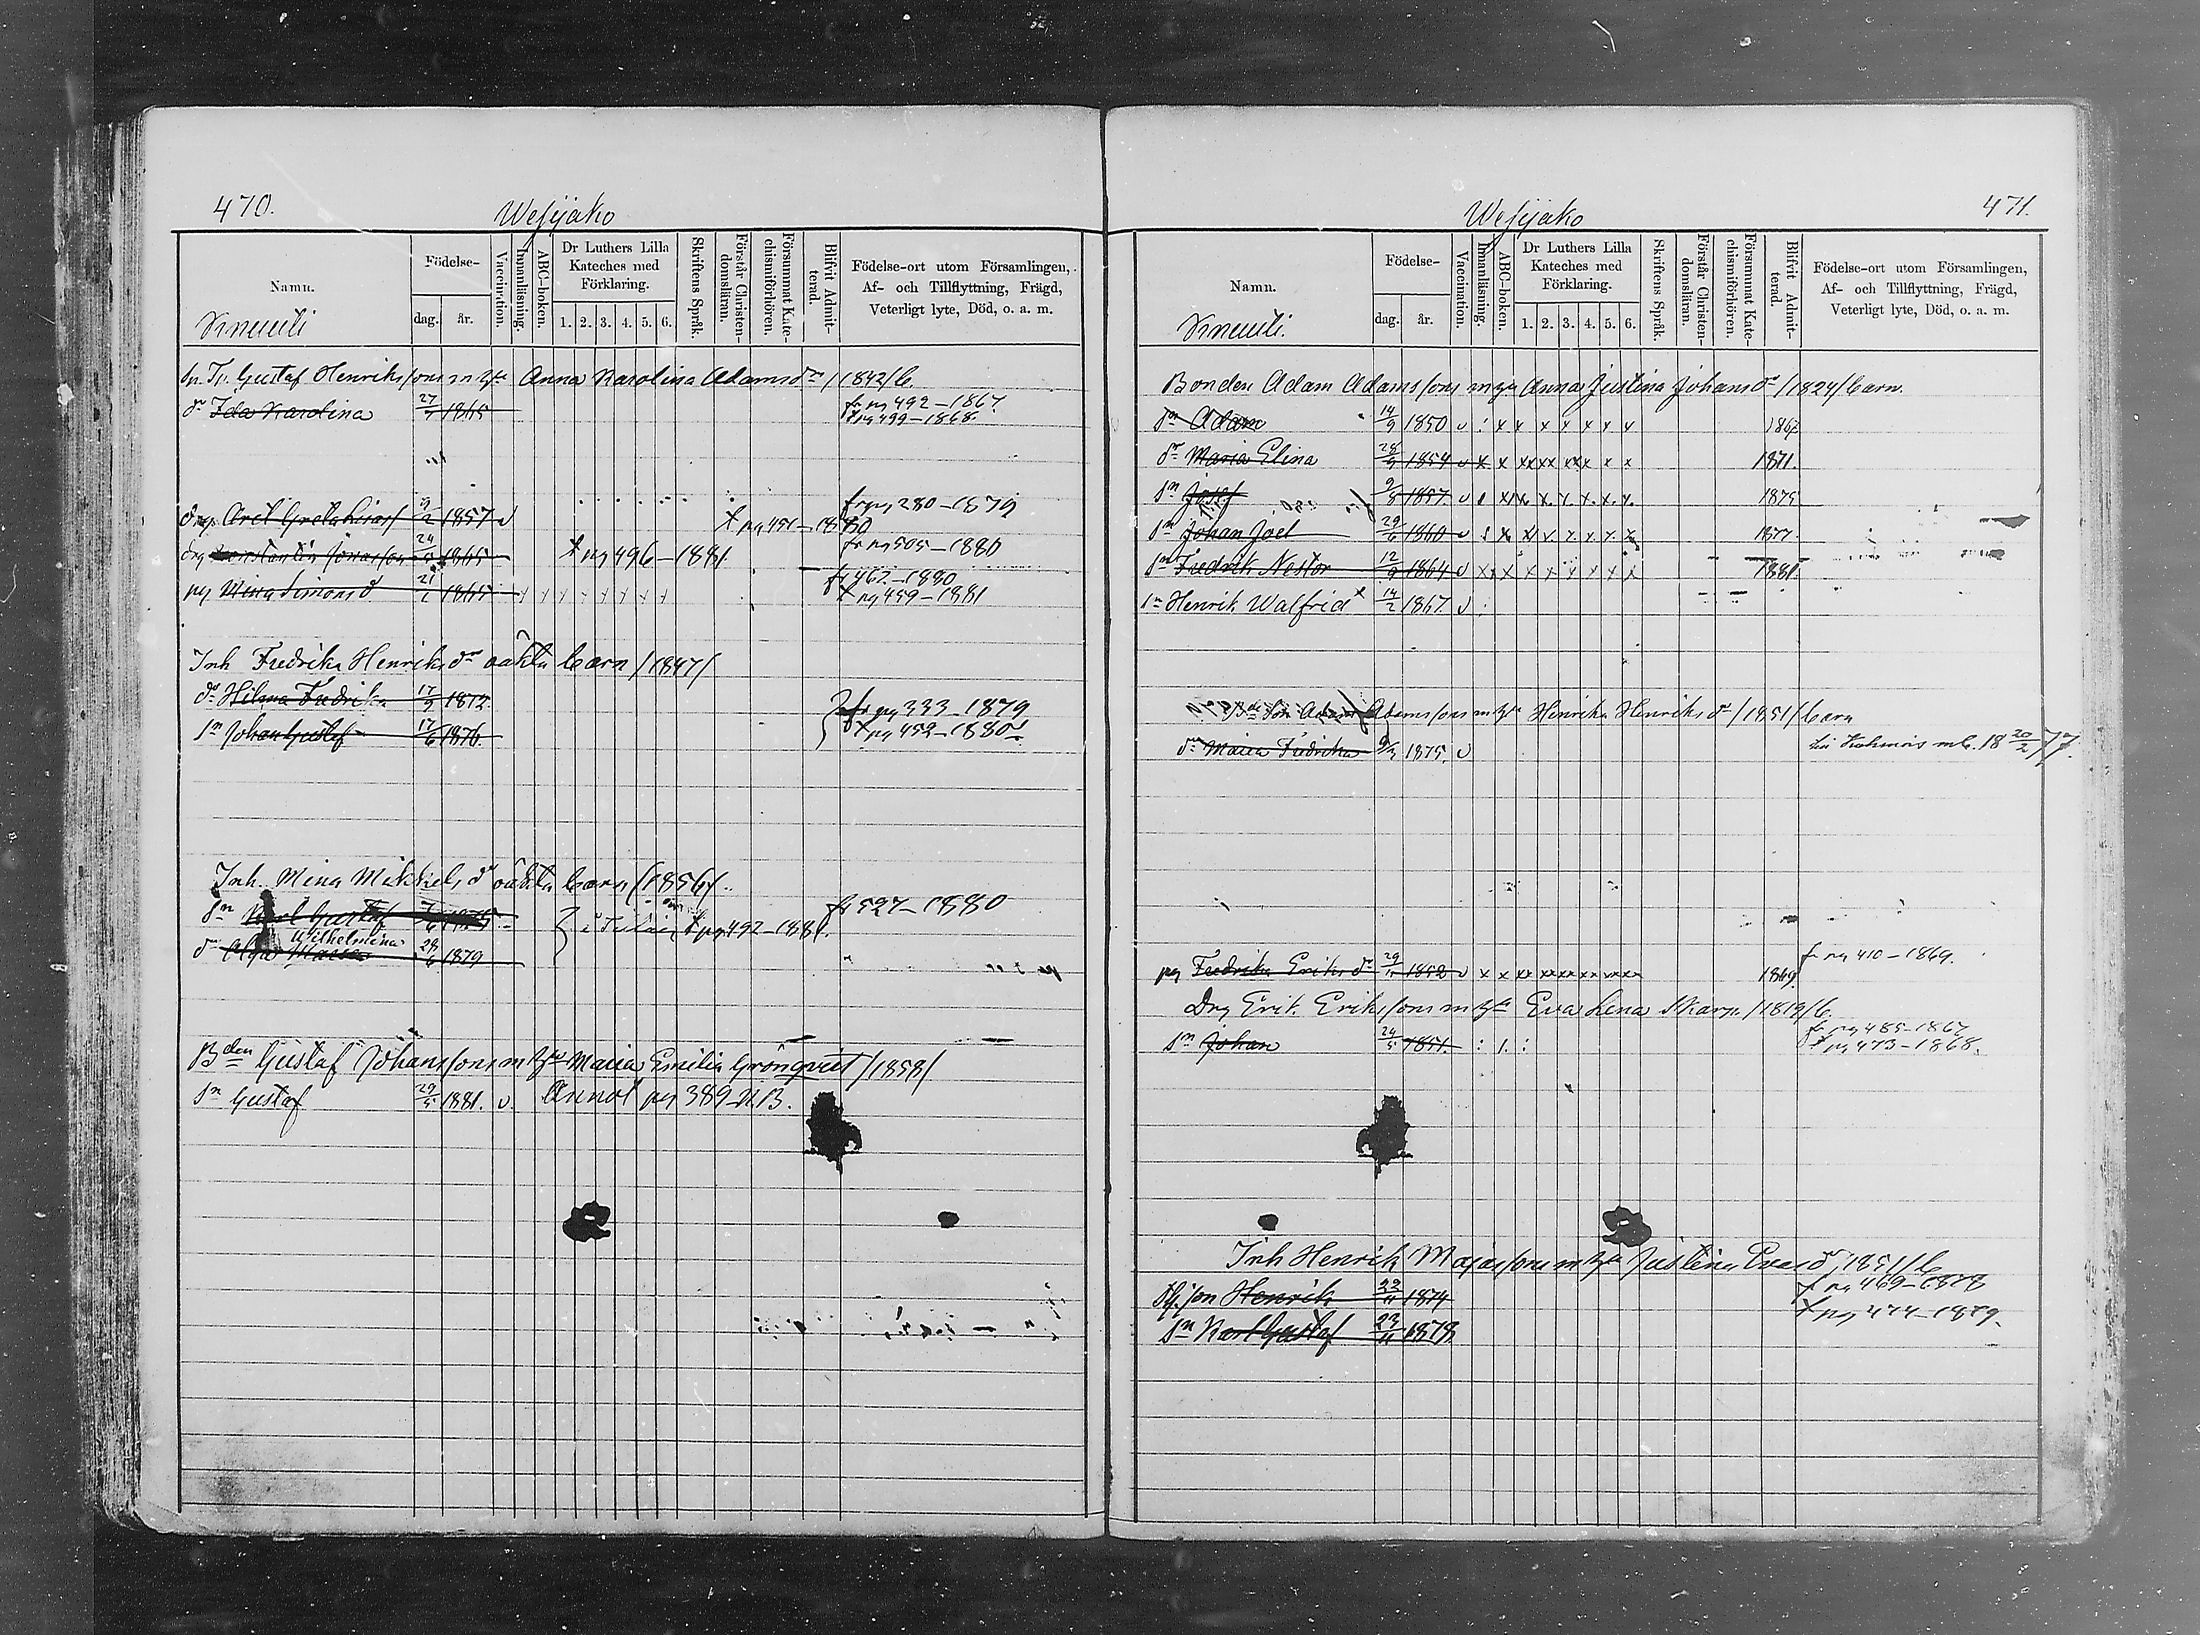 470.
Wesijako
Namn.
Födelse-
dag.
år.
Vaccination.
Innanläsning.
ABC-boken.
Dr Luthers Lilla
Kateches med
Förklaring.
1. 2. 3. 4. 5. 6.
Skriftens Språk.
Förstår Christen-
domsläran.
Försummat Kate-
chismiförhören.
Blifvit Admit-
terad.
Födelse-ort utom Församlingen,
Af- och Tillflyttning, Frägd,
Veterligt lyte, Död, o. a. m.
Knuuti
Gustaf Henrikssons m hu Anna Karolina Adamsdr /1842/ b.
dr Ida Karolina 27/7 1865 fr pg 492-1867.
t pg 499-1868.
fr pg 280-1879
Greta 9/2 1857 v t pg 451-1880
drg Konstantin Jonasson 24 1865 t pg 496-1881 fr pg 505-1880
pg Mina Simonsd 21/1 1865 x x x x x x x x fr 462-1880
t pg 459-1881
Inh Fredrika Henriksdr oäkta barn /1847/
dr Hilma Fredrika 17/9 1872. fr pg 333-1879
sn Johan Gustaf 17/6 1876. t pg 452-1880
Inh. Mina Mikkelsdr oäkta barn /1856/.
sn Karl Gustaf 7/6 1875 t pg 492-1881. fr 527-1880
Wilhelmina
dr Olga Maria 28/6 1879
Bden Gustaf Johanssons m hu Maria Emilia Grönqvist /1858/
sn Gustaf 29/5 1881. v. Annot pg 389-NB.
Wesijako
471.
Namn.
Födelse-
dag.
år.
Vaccination.
Innanläsning.
ABC-boken.
Dr Luthers Lilla
Kateches med
Förklaring.
1. 2. 3. 4. 5. 6.
Skriftens Språk.
Förstår Christen-
domsläran.
Försummat Kate-
chismiförhören.
Blifvit Admit-
terad.
Födelse-ort utom Församlingen,
Af- och Tillflyttning, Frägd,
Veterligt lyte, Död, o. a. m.
Knuuti.
Bonden Adam Adamssons m hu Anna Justina Johansdr /1824/ barn.
sn Adam 14/9 1850 v : x x x x x x x 1867
dr Maria Elina 28/9 1854 v x x xx xx xx x x x 1871.
sn Josef 9/8 1857. v 1875
sn Johan Joel 29/6 1860 v 1877.
sn Fredrik Nestor 12/9 1864 v x x x x x x x x 1881.
sn Henrik Walfrid 14/2 1867. v :
Adam Adamssons m hu Henrika Henriksdr /1851/ barn
dr Maria Fredrika 9/3 1875. v mb. 18 20/2 77.
fr pg 410-1869.
pg Fredrika Eriksdr 29/11 1852 v x x xx xx xx xx xx 1869.
Drg Erik Erikssons m hu Eva Lena Skarp /1819/ b.
fr pg 485-1867
sn Johan 24/5 1851. : 1. : t pg 473-1868.
Inh Henrik Majassons m hu Justina Evasdr /1851/ b
fr pg 469-1878
son Henrik 22/11 1874
t pg 474-1879.
sn Karl Gustaf 23/11 1878